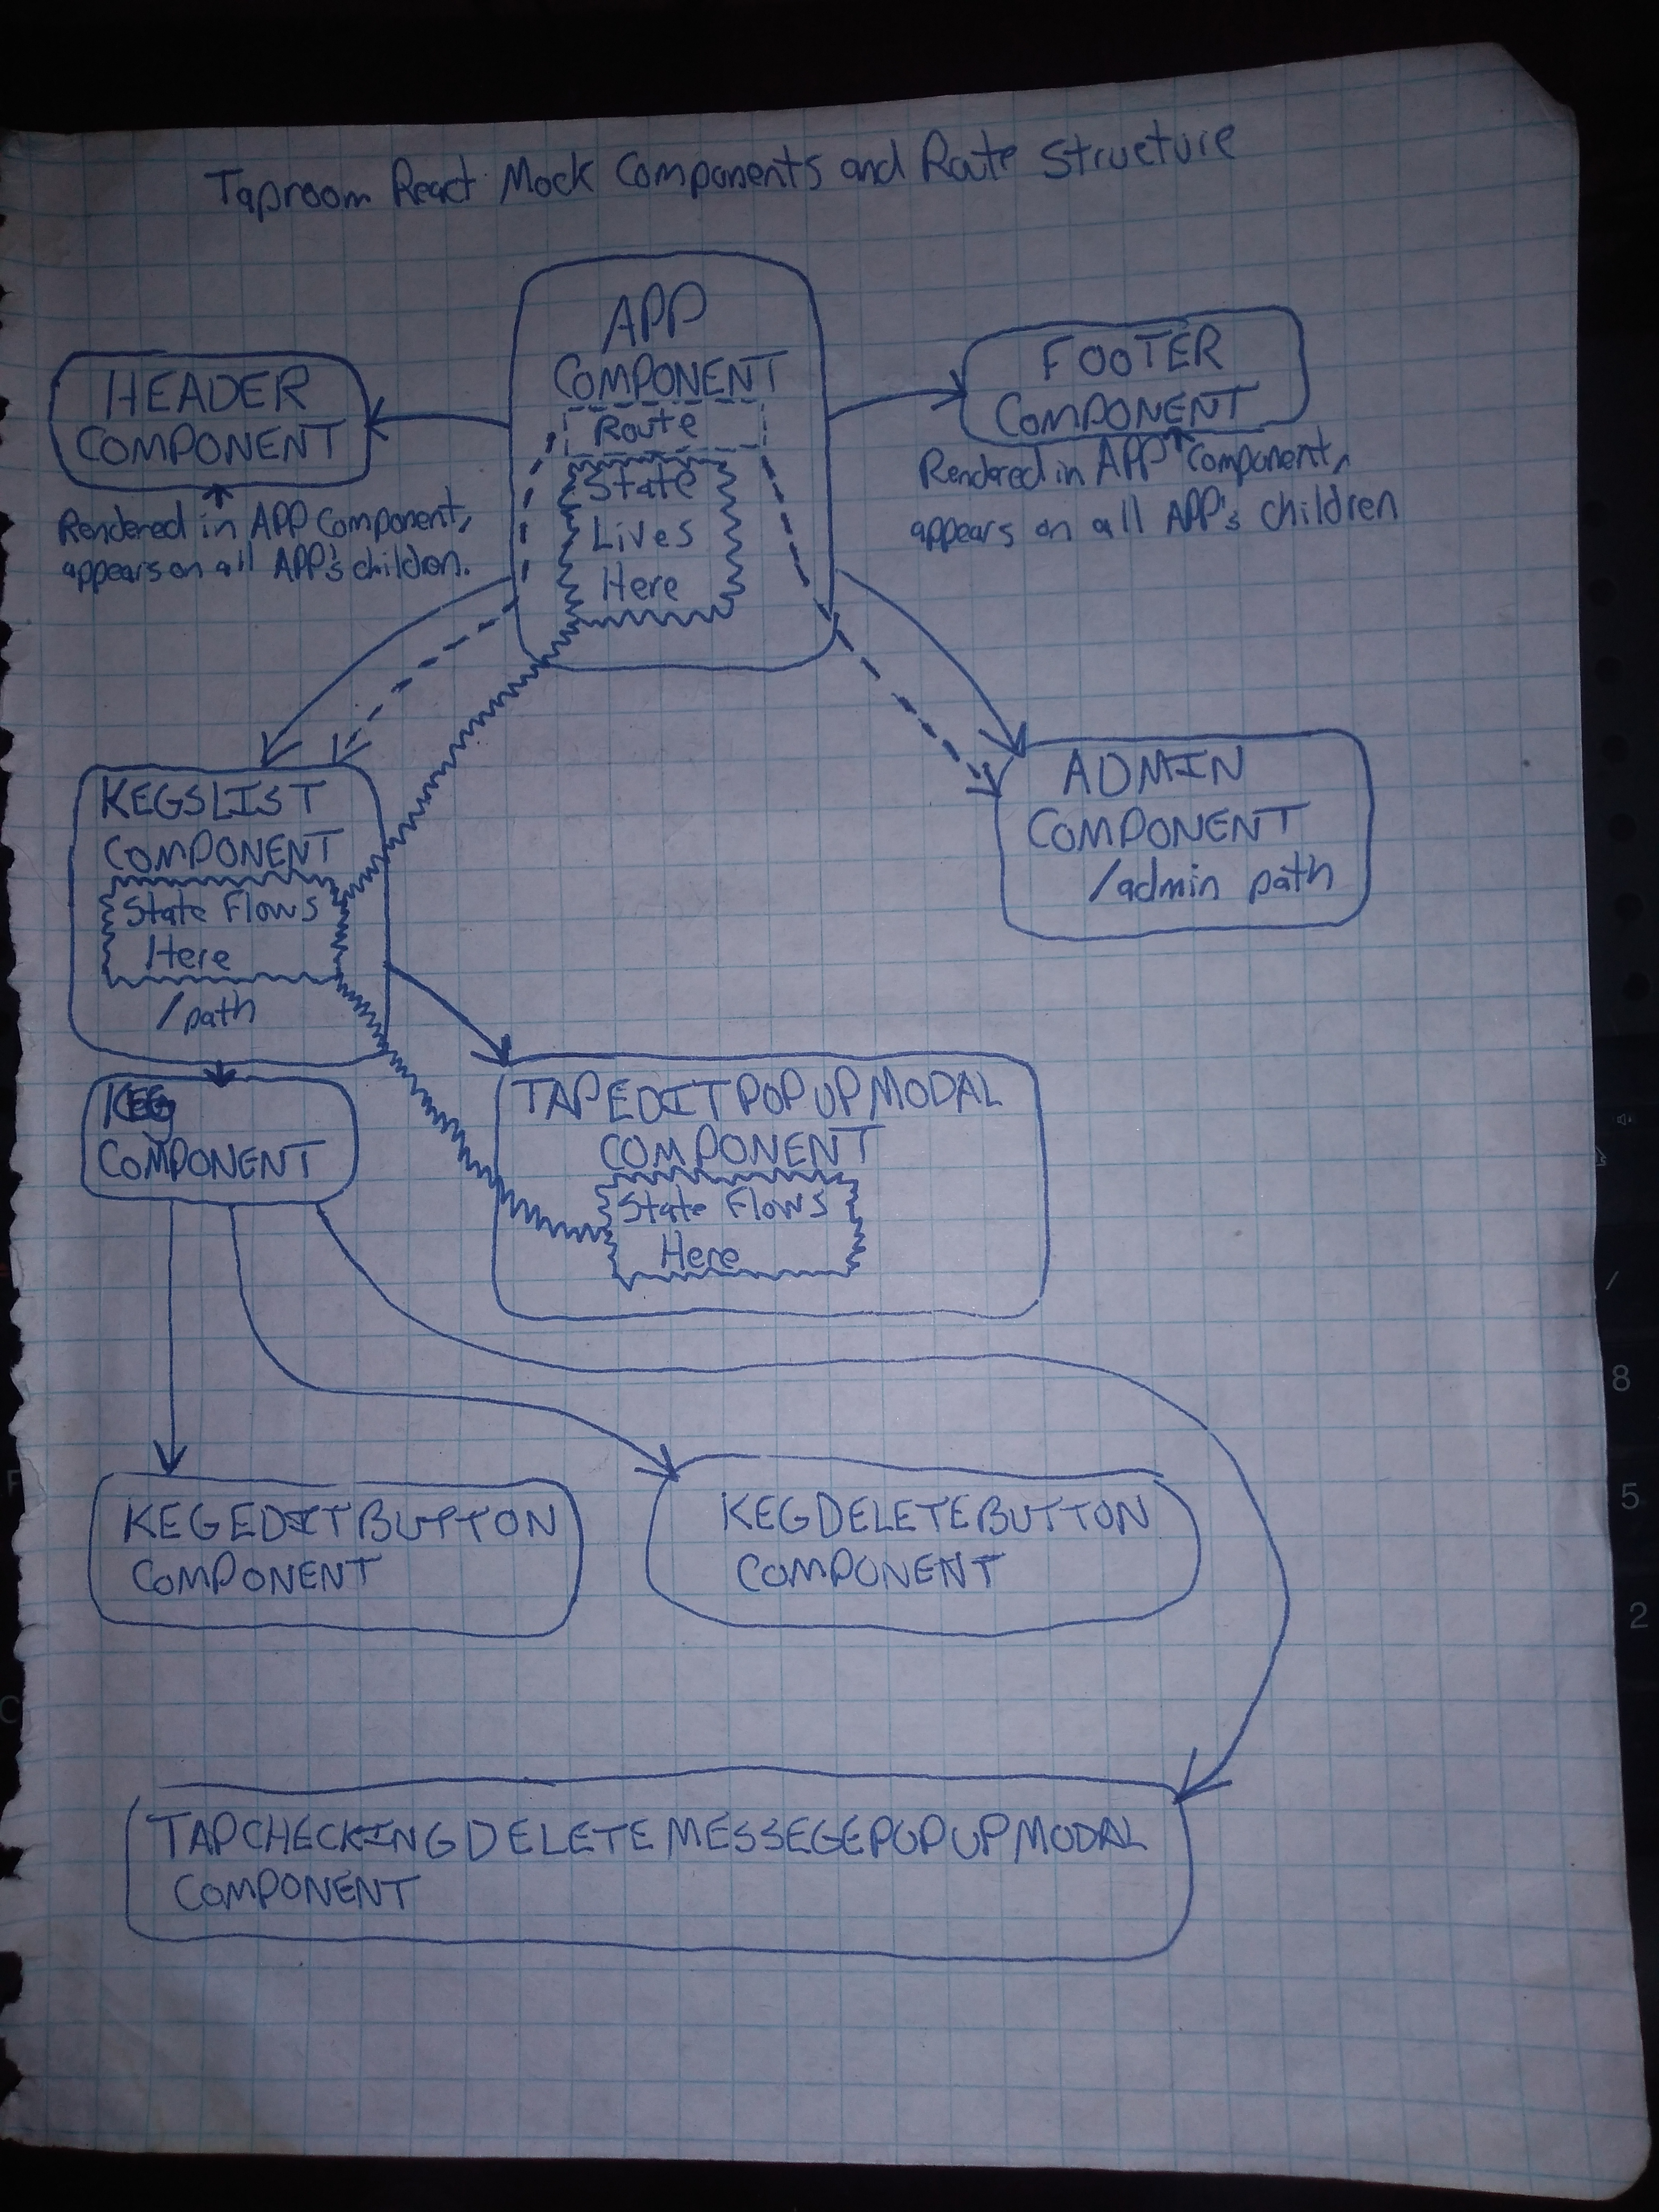 Taproom React Mock Components and Route Structure
APP
COMPONENT
Route
State
Lives
Here
HEADER
COMPONENT
Rendered in APP Component,
appears on all APP's children.
FOOTER
COMPONENT
Rendered in APP Component,
appears on all APP's children
KEGSLIST
COMPONENT
State Flows
Here
/path
ADMIN
COMPONENT
/admin path
KEG
COMPONENT
TAPEDITPOPUPMODAL
COMPONENT
State Flows
Here
KEGEDITBUTTON
COMPONENT
KEGDELETEBUTTON
COMPONENT
TAPCHECKINGDELETEMESSEGEPOPUPMODAL
COMPONENT
8
5
2